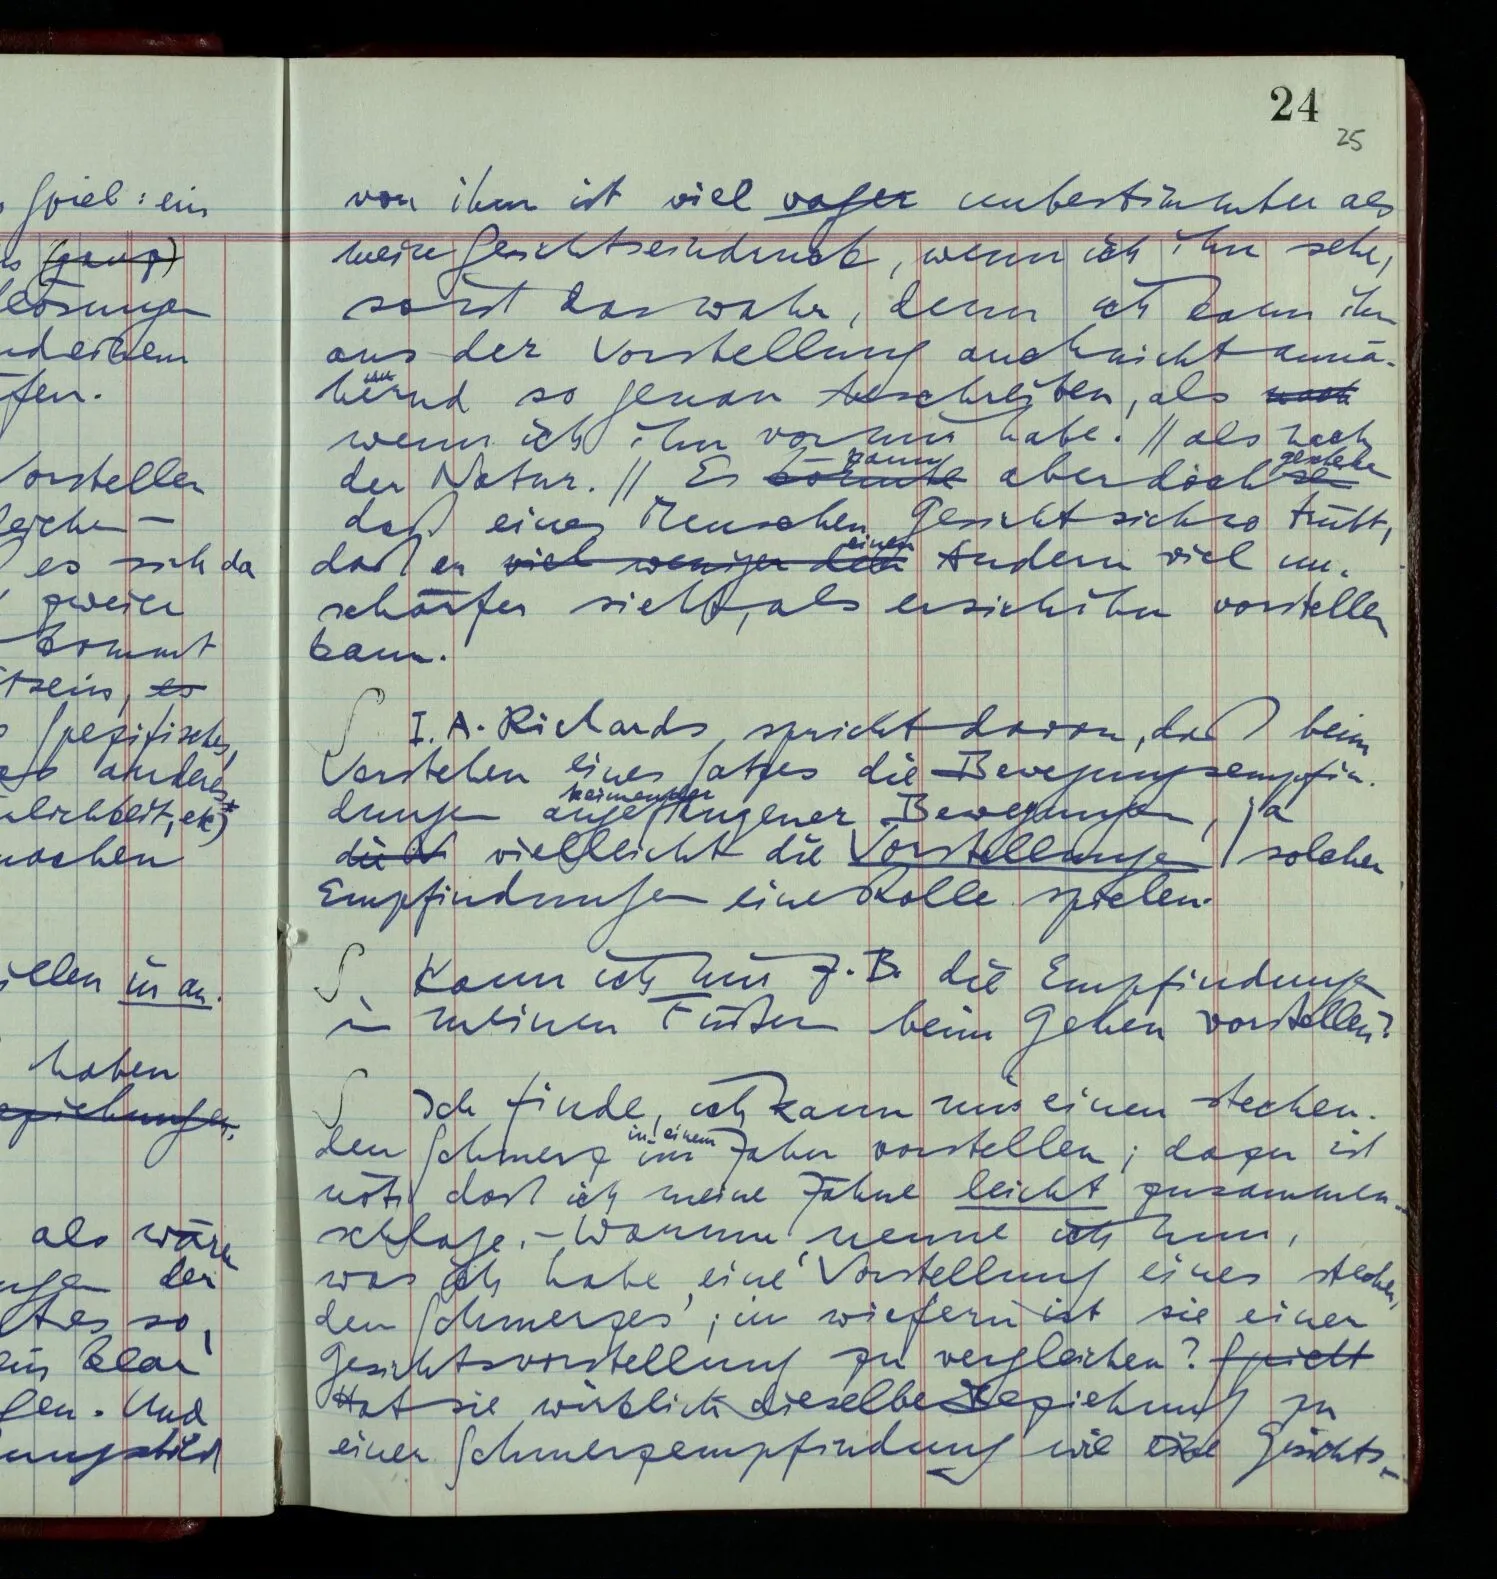 24
25
Spiel: ein
(ganz)
lösungen
fen.
Vorstellen
es sich da
zweier
kommt
tseins, es
spezifisches,
anderes
nlichkeit, etc)
machen
in an-
haben
eziehungen,
als wäre
ngen der
so,
klar
gen. Und
ungsbild
von ihm ist viel vager unbestimmter als
mein Gesichtseindruck, wenn ich ihn sehe,
so ist das wahr, denn ich kann ihn
aus der Vorstellung auch nicht annä-
hernd so genau beschreiben, als nach
wenn ich ihn vor mir habe. // als nach
der Natur. // Es könnte kann aber doch se geschehen
daß eines Menschen Gesicht sich so trübt,
daß er viel weniger den einen Andern viel un-
schärfer sieht, als er sich ihn vorstellen
kann.
∫ I. A. Richards spricht davon, daß beim
Verstehen eines Satzes die Bewegungsempfin-
dungen angefangener keimender Bewegungen, ja
vielleicht die Vorstellungen solcher
Empfindungen eine Rolle spielen.
∫ Kann ich mir z. B. die Empfindung
in meinen Füßen beim Gehen vorstellen?
∫ Ich finde, ich kann mir einen stechen-
den Schmerz im in einem Zahn vorstellen; dazu ist
nötig daß ich meine Zähne leicht zusammen-
schlage. – Warum nenne ich nun,
was ich habe ,eine Vorstellung eines stechen-
den Schmerzes'; in wiefern ist sie einer
Gesichtsvorstellung zu vergleichen? Spielt
Hat sie wirklich dieselbe Beziehung zu
einer Schmerzempfindung wie eine Gesichts-